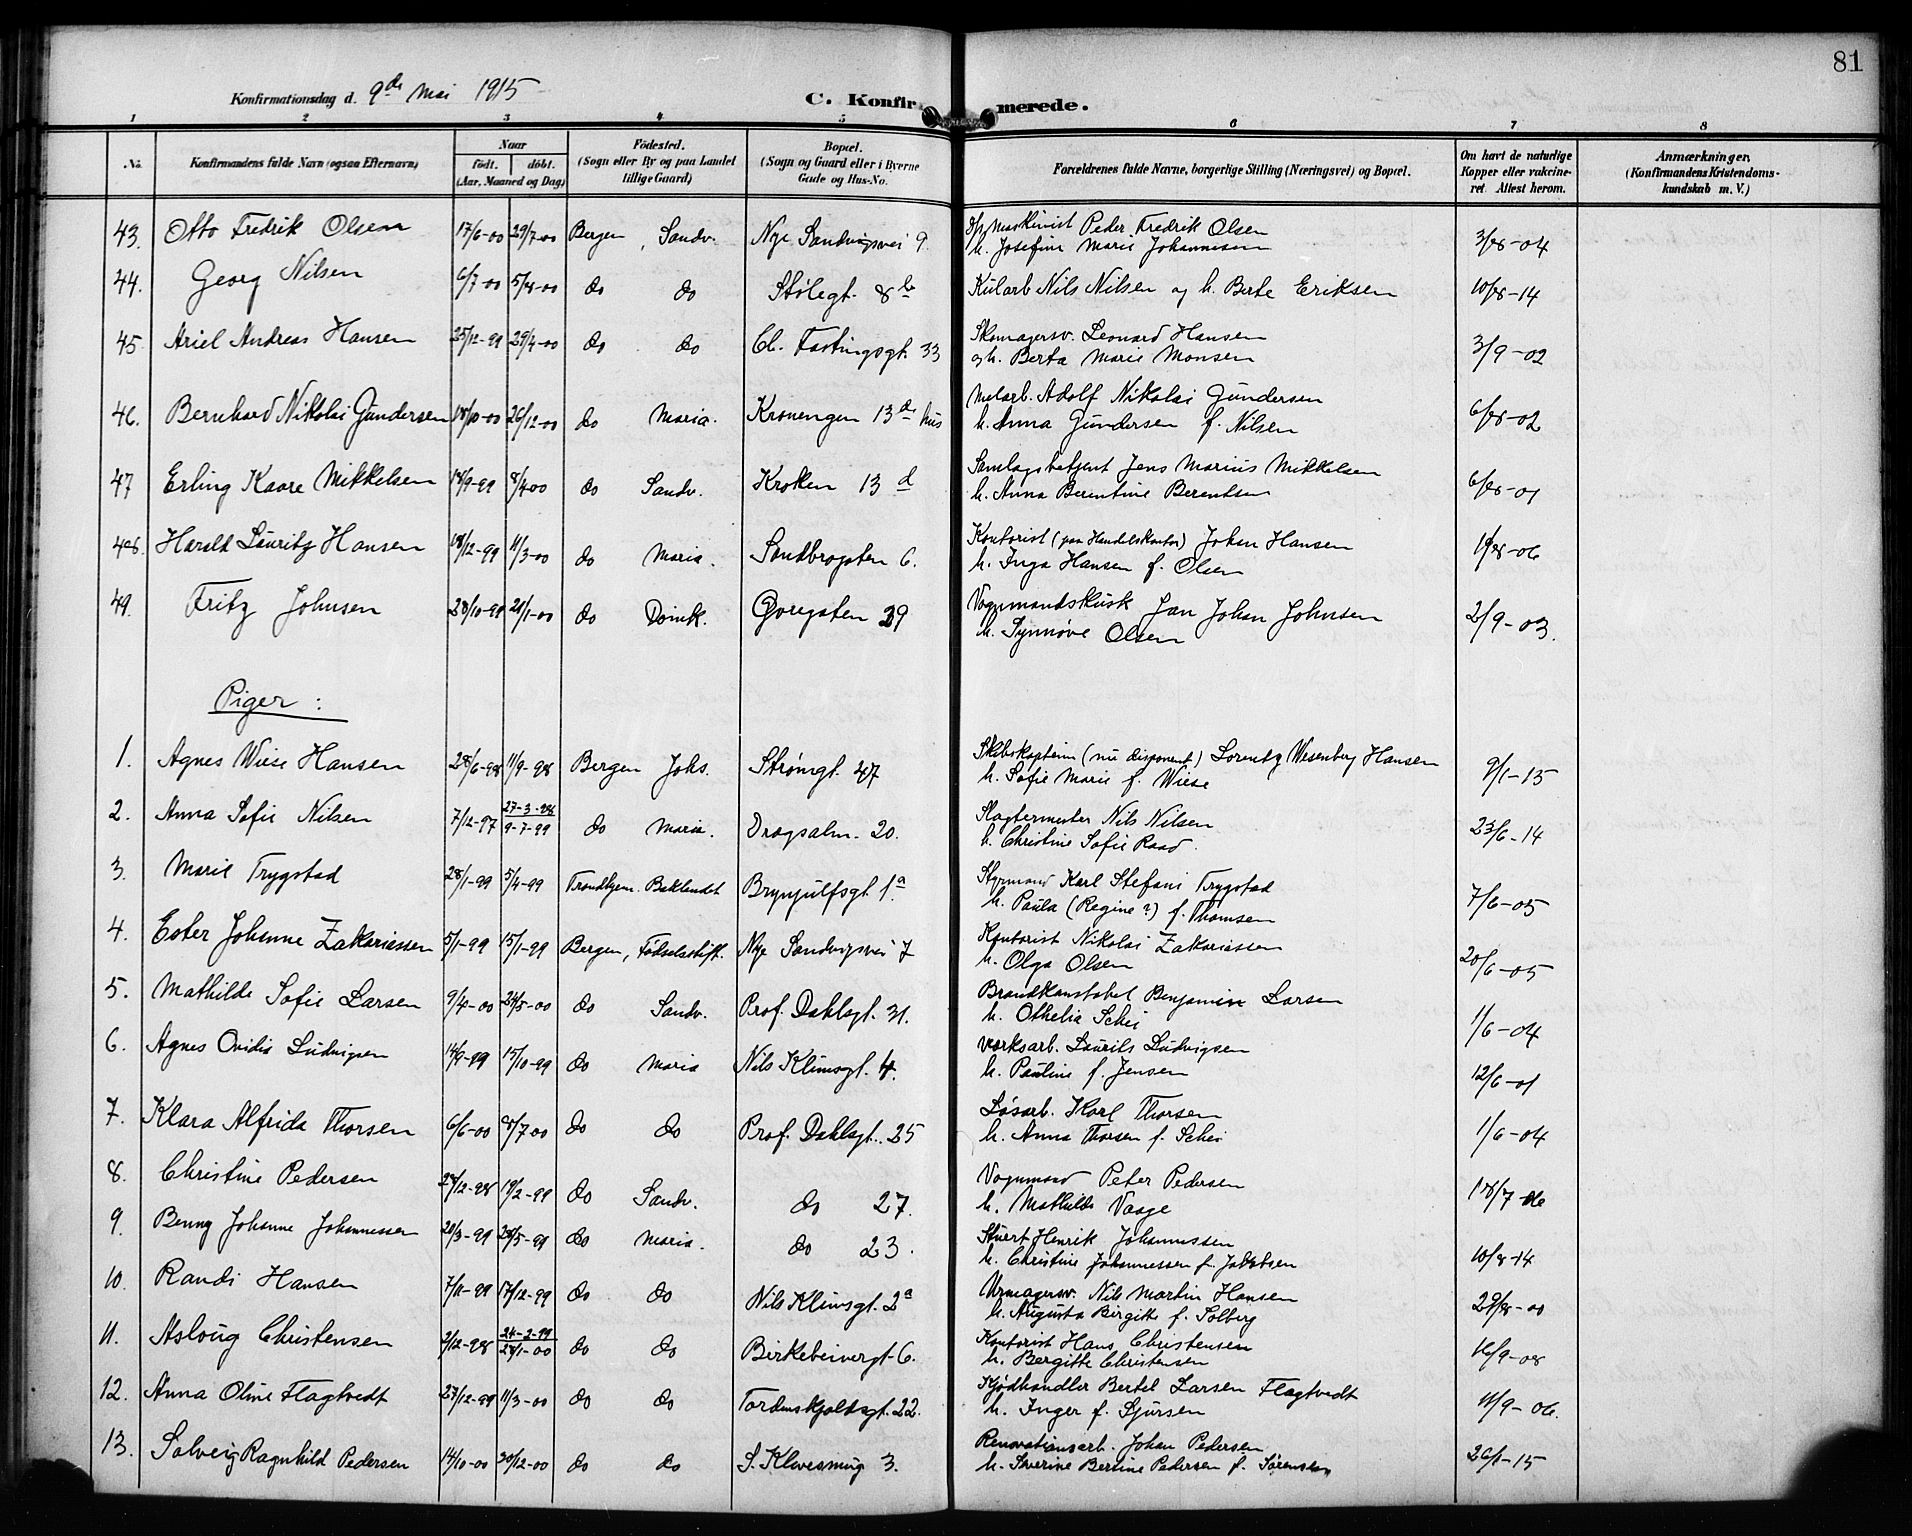 81
Konfirmationsdag d. 9de Mai 1915
C. Konfirmerede.
1 2 3 4 5 6 7 8
No. Konfirmandens fulde Navn (ogsaa Efternavn) Naar födt. döbt. (Aar, Maaned og Dag) Födested. (Sogn eller By og paa Landet tillige Gaard) Bopæl. (Sogn og Gaard eller i Byerne Gade og Hus-No. Forældrenes fulde Navne, borgerlige Stilling (Næringsvei) og Bopæl. Om havt de naturlige Kopper eller vakcineret. Attest herom. Anmærkninger. (Konfirmandens Kristendomskundskab m. V.)
43. Otto Fredrik Olsen 17/6-00 29/7-00 Bergen, Sandv. Nye Sandvigsvei 9. Maskinist Peder Fredrik Olsen 3/8-04
h. Josefine Marie Johannesen
44. Georg Nilsen 6/7-00 5/8-00 do do Stølegt. 8b Kularb. Nils Nilsen og h. Berte Eriksen 10/8-14
45. Ariel Andreas Hansen 25/12-99 29/4-00 do do Cl. Fastingsgt. 33 Skomagersv. Leonard Hansen 3/9-02
og h. Berta Marie Monsen
46. Bernhard Nikolai Gundersen 18/10-00 26/12-00 do Maria. Kronengen 13de hus Melarb. Adolf Nikolai Gundersen 6/8-02
h. Anna Gundersen f. Nilsen
47 Erling Kaare Mikkelsen 18/9-99 8/4-00 do Sandv. Kroken 13d Samlagsbetjent Jens Marius Mikkelsen 6/8-01
h. Anna Berentine Berentsen
48. Harald Lauritz Hansen 18/12-99 11/3-00 do Maria. Sandbrogaten 6. Kontorist (paa Handelskontor) Johan Hansen
h. Inga Hansen f. Olsen
49. Fritz Johnsen do Domk. Øvregaten 29 Vognmandskusk Jan Johan Johnsen 2/9-03.
h. Synnøve Olsen
Piger:
1. Agnes Wiese Hansen 28/6-98 11/9-98 Bergen Johs. Strømgt. 47 Skibskaptein (nu disponent) Lorentz Wesenberg Hansen 9/1-15
h. Sofie Marie f. Wiese
2. Anna Sofie Nilsen 7/12-97 27-3-98 9-7-99 do Maria. Dragsalm. 20. Slagtermester Nils Nilsen 23/6-14
h. Christine Sofie Raad.
3. Marie Trygstad 28/1-99 5/4-99 Trondhjem. Baklandet Brynjulfsgt 1a. Styrmand Karl Stefani Trygstad 7/6-05
h. Paula (Regine?) f. Thomsen
4. Ester Johanne Zakariassen 5/1-99 15/1-99 Bergen, Fødselsstift. Nye Sandvigsvei 7 Kontorist Nikolai Zakariassen 20/6-05
h. Olga Olsen
5. Mathilde Sofie Larsen 9/4-00 24/5-00 do Sandv. Prof. Dahlsgt. 31. Brandkonstabel Benjamin Larsen 1/6-04
h. Othelia Schei
6. Agnes Ovidia Ludvigsen 14/9-99 15/10-99 do Maria Nils Klimsgt. 4. Verksarb. Laurits Ludvigsen 12/6-01
h. Pauline f. Jensen
7. Klara Alfrida Thorsen 6/6-00 8/7-00 do do Prof. Dahlsgt. 25 Løsarb. Karl Thorsen 1/6-04
h. Anna Thorsen f. Schei
8. Christine Pedersen 28/12-98 19/2-99 do Sandv. do 27. Vognmand Peter Pedersen 18/7-06
h. Mathilde Vaage
9. Benny Johanne Johannessen 20/3-99 28/5-99 do Maria. do 23. Stuert Henrik Johannessen 10/8-14
h. Christine Johannessen f. Jakobsen
10. Randi Hansen 7/11-99 17/12-99 do do Nils Klimsgt. 2a Urmagersv. Nils Martin Hansen 29/8-00
h. Augusta Birgitte f. Solberg
11. Aslaug Christensen 2/12-98 24-2-99 28/1-00 do do Birkebeinergt. 6. Kontorist Hans Christensen 16/9-08
h. Bergitte Christensen
12. Anna Oline Flagtvedt 27/12-99 11/3-00 do do Tordenskjoldsgt. 22. Kjødhandler Bertel Larsen Flagtvedt 11/9-06.
h. Inger f. Sjursen
13. Solveig Ragnhild Pedersen 14/10-00 30/12-00 do do S. Klevesmug 3. Renovationsarb. Johan Pedersen 26/1-15
h. Severine Bertine Pedersen f. Sørensen